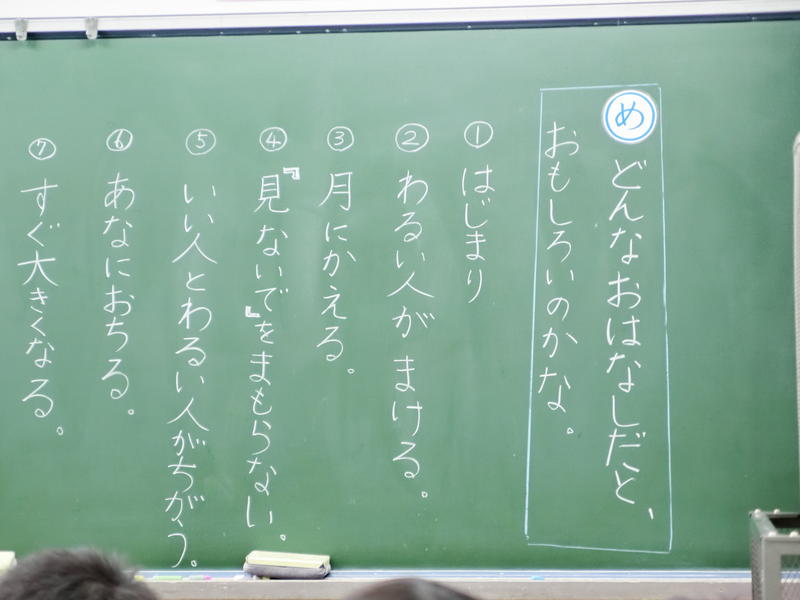 め
どんなおはなしだと、
おもしろいのかな。
①はじまり
②わるい人が まける。
③月にかえる。
④『見ないで』をまもらない。
⑤いい人とわるい人がちがう。
⑥あなにおちる。
⑦すぐ大きくなる。